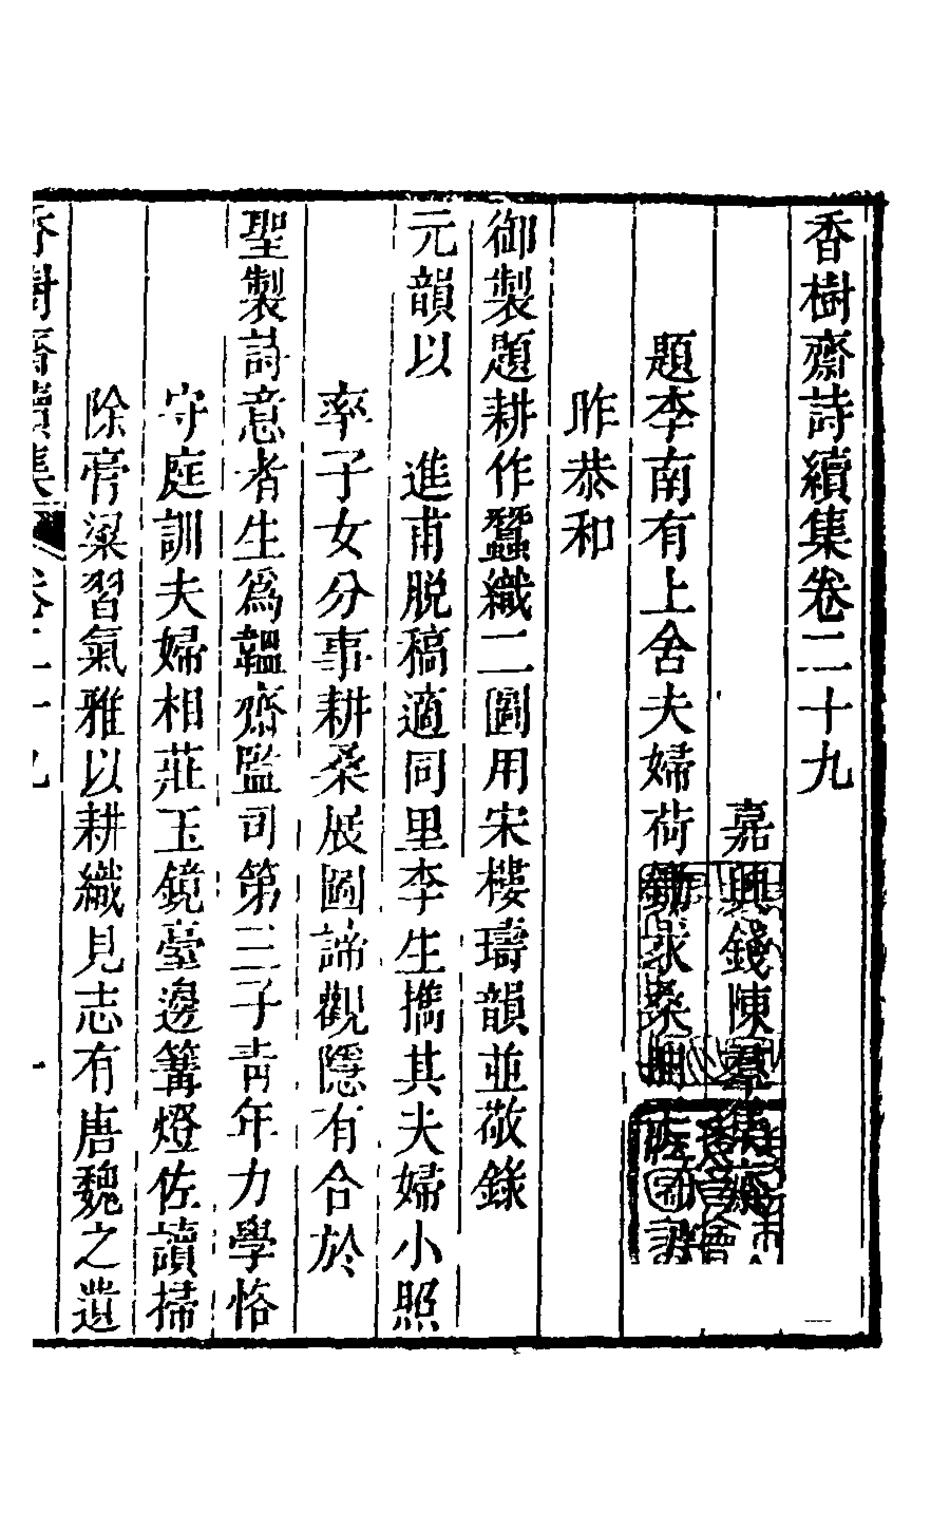 香樹齋詩續集卷二十九
嘉興錢陳羣集齋
題李南有上舍夫婦荷鋤采桑圖
昨恭和
御製題耕作蠶織二圖用宋樓璹韻並敬錄
元韻以　進甫脱稿適同里李生攜其夫婦小照
率子女分事耕桑展圖諦觀隱有合於
聖製詩意者生爲韞齋監司第三子靑年力學恪
守庭訓夫婦相莊玉鏡臺邊篝燈佐讀掃
除膏粱習氣雅以耕織見志有唐魏之遺
香樹齋續集　卷二十九　一